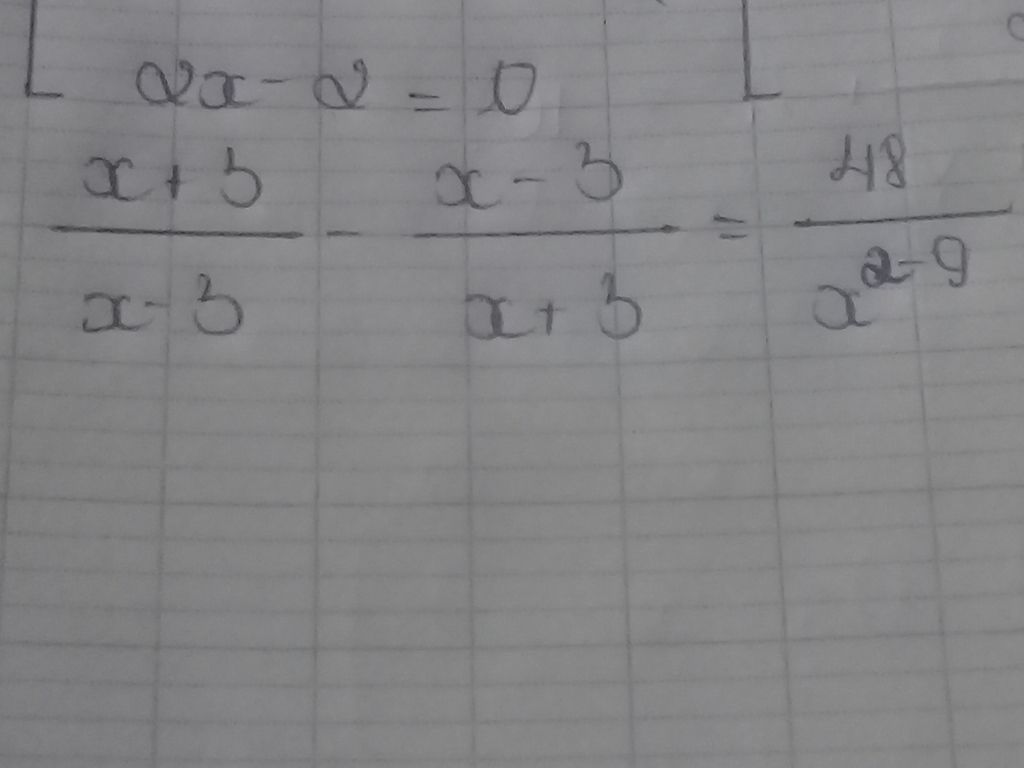 2x - 2 = 0
x + 3 / x - 3 - x - 3 / x + 3 = 48 / x^2-9